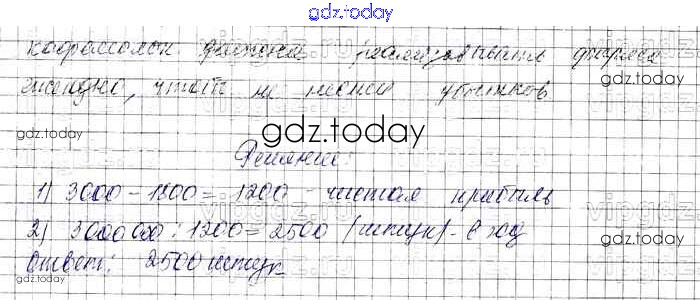 gdz.today
кофемолок должна реализовывать фирма
ежегодно, чтобы не нести убытков
gdz.today
gdz.today
Решение:
1) 3000 - 1800 = 1200 - чистая прибыль
2) 3000000 : 1200 = 2500 (штук) - в год
Ответ: 2500 штук
gdz.today
gdz.today